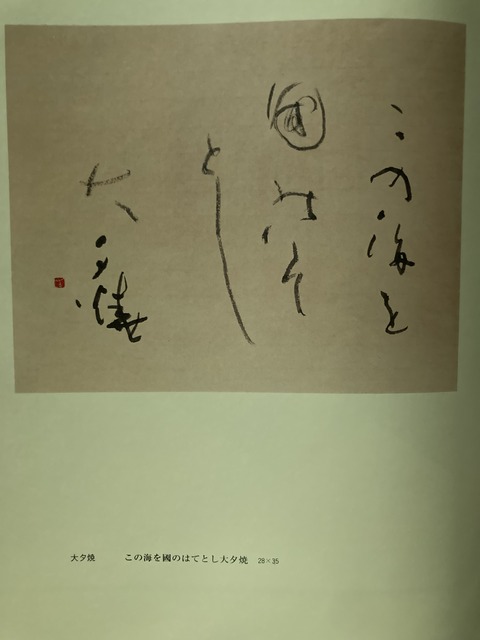 この海を
國のはて
とし
大夕燒
大夕燒　この海を國のはてとし大夕燒　28×35